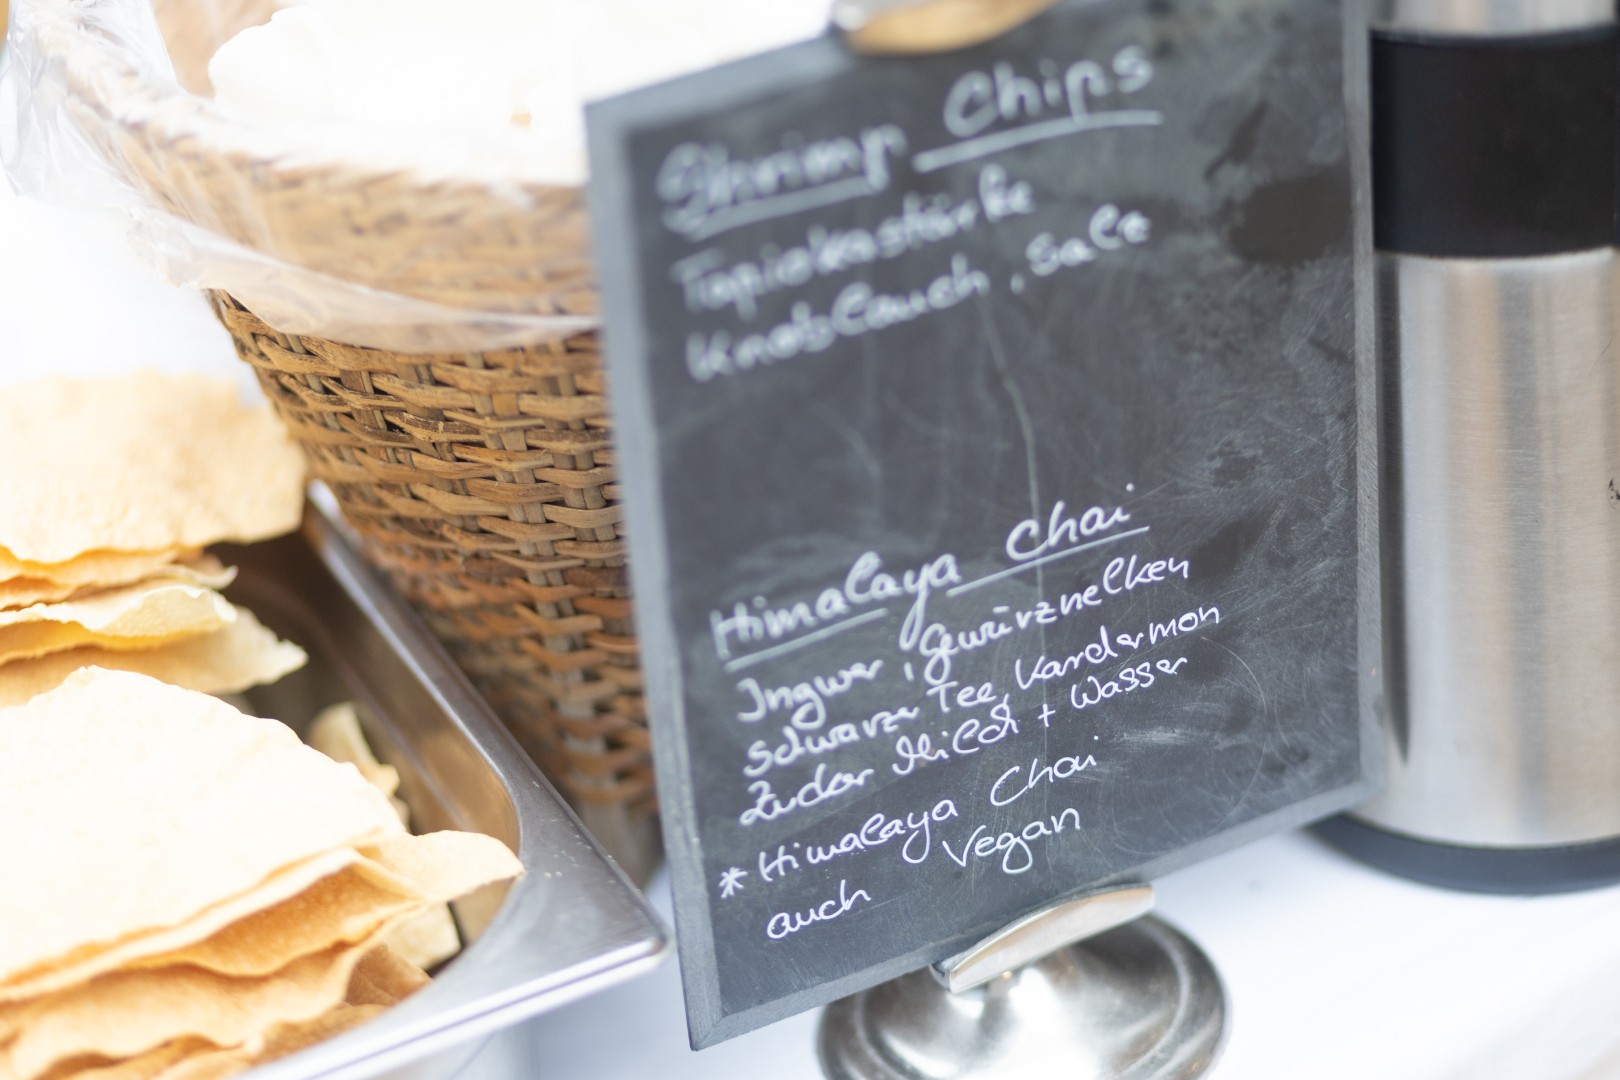 Shrimp Chips
Tapiokastärke
Knoblauch, Salt
Himalaya Chai
Ingwer, Gewürznelken
Schwarze Tee, Kardermon
Zucker Milch + Wasser
* Himalaya Chai
auch Vegan